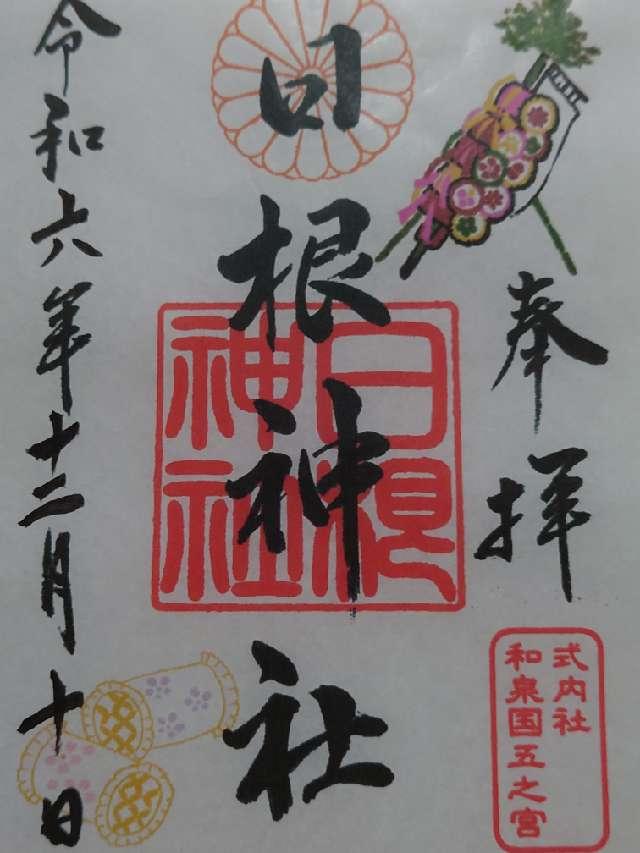 奉拝
式内社
和泉国五之宮
日根神社
日根神社
令和六年十二月十日